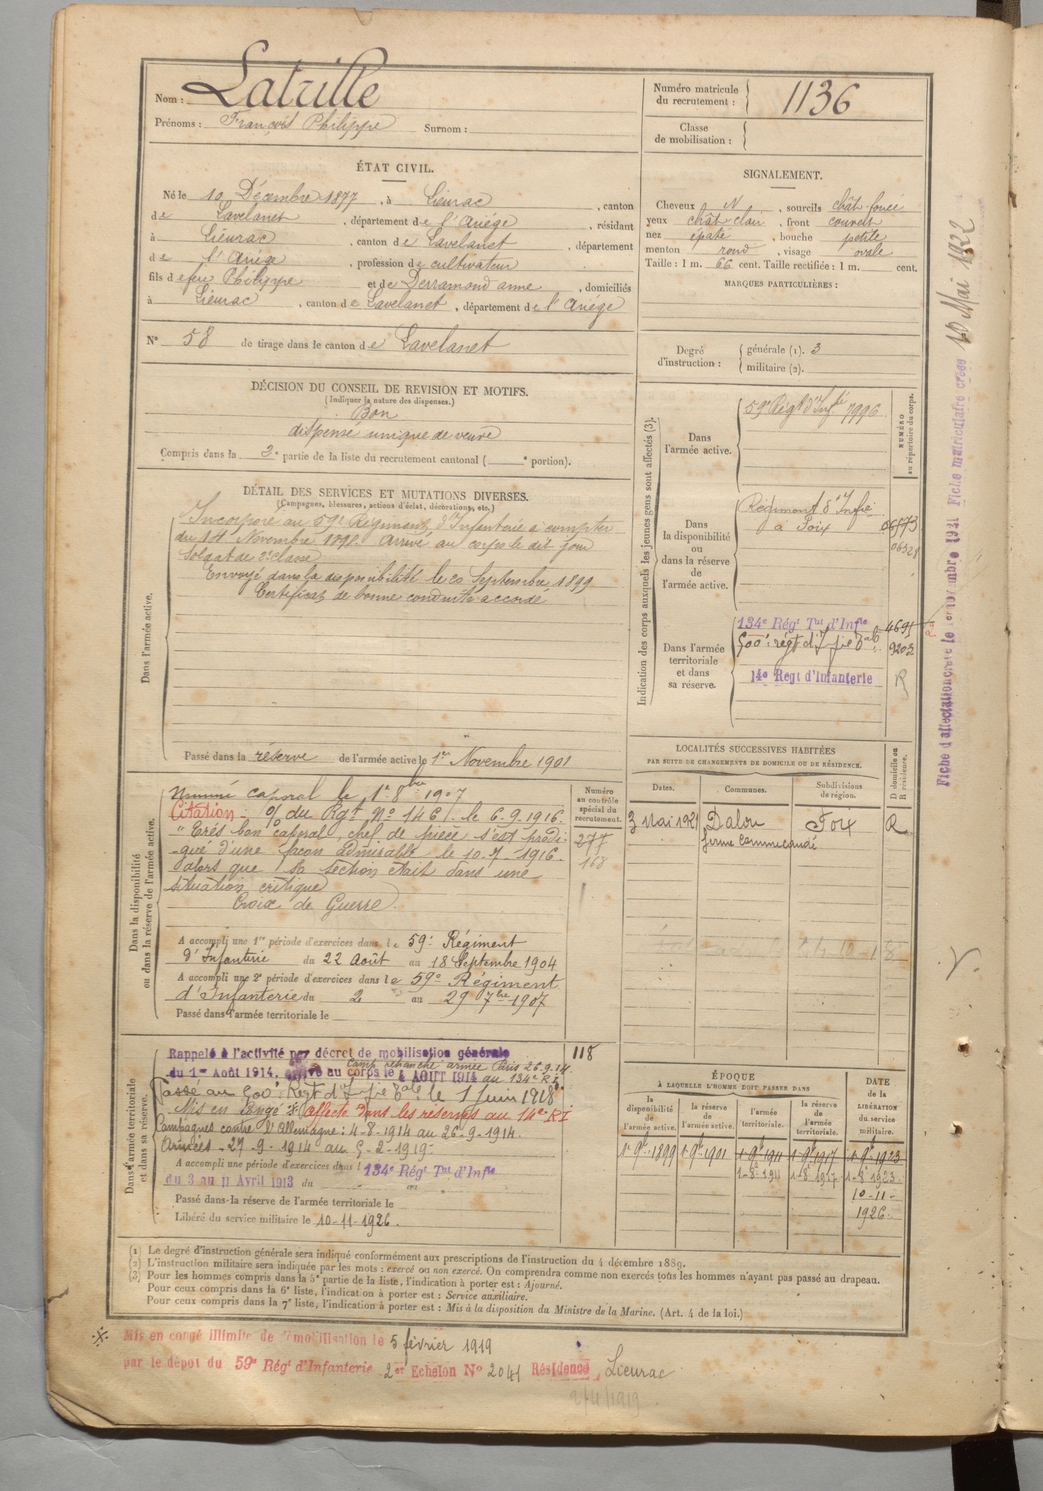 Nom : Latrille
Prénoms : François Philippe Surnom :
Numéro matricule du recrutement : 1136
Classe de mobilisation :
ÉTAT CIVIL.
Né le 10 Décembre 1877, à Lieurac, canton
de Lavelanet, département de l'Ariège, résidant
à Lieurac, canton de Lavelanet, département
de l'Ariège, profession de cultivateur
fils de feu Philippe et de Derramond anne, domiciliés
à Lieurac, canton de Lavelanet, département de l'Ariège
N° 58 de tirage dans le canton de Lavelanet
SIGNALEMENT.
Cheveux N, sourcils chât foncé
yeux chât clair, front couvert
nez épaté, bouche petite
menton rond, visage ovale
Taille : 1 m. 66 cent. Taille rectifiée : 1 m. cent.
MARQUES PARTICULIÈRES :
Degré d'instruction : générale (1). 3
militaire (2).
DÉCISION DU CONSEIL DE REVISION ET MOTIFS.
(Indiquer la nature des dispenses.)
Bon
dispensé unique de veuve
Compris dans la 2e partie de la liste du recrutement cantonal ( portion).
DÉTAIL DES SERVICES ET MUTATIONS DIVERSES.
(Campagnes, blessures, actions d'éclat, décorations, etc.)
Dans l'armée active.
Incorporé au 59e Régiment d'Infanterie à compter
du 14 Novembre 1898. Arrivé au corps le dit jour
Soldat de 2e classe
Envoyé dans la disponibilité le 20 Septembre 1899
Certificat de bonne conduite accordé
Passé dans la réserve de l'armée active le 1er Novembre 1901
Indication des corps auxquels les jeunes gens sont affectés (3).
NUMÉRO au répertoire du corps.
Dans l'armée active.
59e Régt d'Infie 7996
Dans la disponibilité ou dans la réserve de l'armée active.
Régiment d'Infie
à Foix
06521
Dans l'armée territoriale et dans sa réserve.
134e Régt Tal d'Infie 4695
500e régt d'Infie 9203
14e Regt d'Infanterie R
Dans la disponibilité ou dans la réserve de l'armée active.
Nommé caporal le 1er 8bre 1907
Citation : O/ du Rgt N° 146 / le 6.9.1916.
"Très bon caporal, chef de pièce s'est prodi-
-gué d'une façon admirable le 10.7.1916.
alors que sa section était dans une
situation critique
Croix de Guerre
Numéro au contrôle spécial du recrutement.
277
168
A accompli une 1re période d'exercices dans le 59e Régiment
d'Infanterie du 22 Août au 18 Septembre 1904
A accompli une 2e période d'exercices dans le 59e Régiment
d'Infanterie du 2 au 29 7bre 1907
Passé dans l'armée territoriale le
LOCALITÉS SUCCESSIVES HABITÉES
PAR SUITE DE CHANGEMENTS DE DOMICILE OU DE RÉSIDENCE.
Dates. Communes. Subdivisions de région. D domicile ou R résidence.
3 Mai 1921 Dalou Foix R
Dans l'armée territoriale et dans sa réserve.
Rappelé à l'activité par décret de mobilisation générale
118
du 1er Août 1914, arrivé au corps le 4 AOUT 1914 au 134e RI
Camp retranché armée Paris 26.9.14
Passé au 500e Regt d'Infie le 1 Juin 1918
Mis en congé * affecté dans les réserves au 14e RI
Campagnes contre l'Allemagne : 4-8-1914 au 26-9-1914.
Armées - 27-9-1914 au 5-2-1919.
A accompli une période d'exercices dans l 134e Régt Tal d'Infie
du 3 au 11 Avril 1913 du au
Passé dans la réserve de l'armée territoriale le
Libéré du service militaire le 10-11-1926.
ÉPOQUE
À LAQUELLE L'HOMME DOIT PASSER DANS
la disponibilité de l'armée active.
la réserve de l'armée active.
l'armée territoriale.
la réserve de l'armée territoriale.
DATE de la LIBÉRATION du service militaire.
1er 9bre 1899 1er 9bre 1901 1er 9bre 1911 1er 9bre 1917 1er 9bre 1923
1-8bre 1911 1-8bre 1917 1-8bre 1923.
10-11-
1926.
(1) Le degré d'instruction générale sera indiqué conformément aux prescriptions de l'instruction du 4 décembre 1889.
(2) L'instruction militaire sera indiquée par les mots : exercé ou non exercé. On comprendra comme non exercés tous les hommes n'ayant pas passé au drapeau.
(3) Pour les hommes compris dans la 5e partie de la liste, l'indication à porter est : Ajourné.
Pour ceux compris dans la 6e liste, l'indication à porter est : Service auxiliaire.
Pour ceux compris dans la 7e liste, l'indication à porter est : Mis à la disposition du Ministre de la Marine. (Art. 4 de la loi.)
* Mis en congé illimité de démobilisation le 5 février 1919
par le dépôt du 59e Régt d'Infanterie 2er Echelon N° 2041 Résidence Lieurac
2/4/1919
Fiche d'affectation créée le Septembre 1921 Fiche matriculaire créée 10 Mai 1922